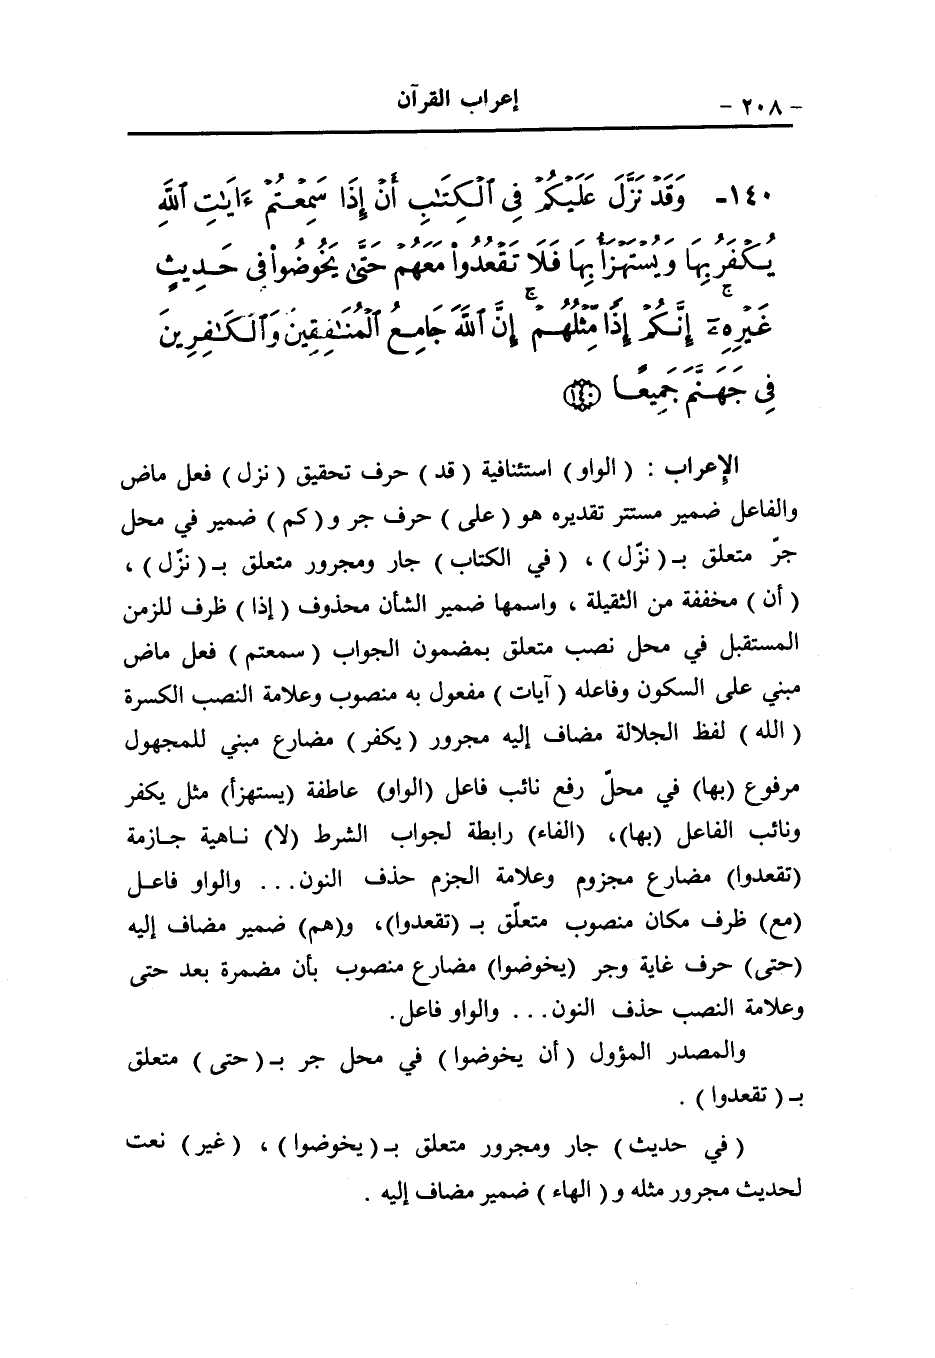 إعراب القرآن
- ٢٠٨ -
١٤٠- وَقَدْ نَزَّلَ عَلَيْكُمْ فِى ٱلْكِتَٰبِ أَنْ إِذَا سَمِعْتُمْ ءَايَٰتِ ٱللَّهِ
يُكْفَرُ بِهَا وَيُسْتَهْزَأُ بِهَا فَلَا تَقْعُدُوا۟ مَعَهُمْ حَتَّىٰ يَخُوضُوا۟ فِى حَدِيثٍ
غَيْرِهِۦٓ ۚ إِنَّكُمْ إِذًا مِّثْلُهُمْ ۗ إِنَّ ٱللَّهَ جَامِعُ ٱلْمُنَٰفِقِينَ وَٱلْكَٰفِرِينَ
فِى جَهَنَّمَ جَمِيعًا ١٤٠
الإعراب : ( الواو ) استئنافية ( قد ) حرف تحقيق ( نزل ) فعل ماض
والفاعل ضمير مستتر تقديره هو ( على ) حرف جر و ( كم ) ضمير في محل
جرّ متعلق بـ ( نزّل ) ، ( في الكتاب ) جار ومجرور متعلق بـ ( نزّل ) ،
( أن ) مخففة من الثقيلة ، واسمها ضمير الشأن محذوف ( إذا ) ظرف للزمن
المستقبل في محل نصب متعلق بمضمون الجواب ( سمعتم ) فعل ماض
مبني على السكون وفاعله ( آيات ) مفعول به منصوب وعلامة النصب الكسرة
( الله ) لفظ الجلالة مضاف إليه مجرور ( يكفر ) مضارع مبني للمجهول
مرفوع (بها) في محلّ رفع نائب فاعل (الواو) عاطفة (يستهزأ) مثل يكفر
ونائب الفاعل (بها)، (الفاء) رابطة لجواب الشرط (لا) ناهية جازمة
(تقعدوا) مضارع مجزوم وعلامة الجزم حذف النون... والواو فاعل
(مع) ظرف مكان منصوب متعلّق بـ (تقعدوا)، و(هم) ضمير مضاف إليه
(حتى) حرف غاية وجر (يخوضوا) مضارع منصوب بأن مضمرة بعد حتى
وعلامة النصب حذف النون... والواو فاعل.
والمصدر المؤول ( أن يخوضوا ) في محل جر بـ ( حتى ) متعلق
بـ ( تقعدوا ) .
( في حديث ) جار ومجرور متعلق بـ ( يخوضوا ) ، ( غير ) نعت
لحديث مجرور مثله و ( الهاء ) ضمير مضاف إليه .